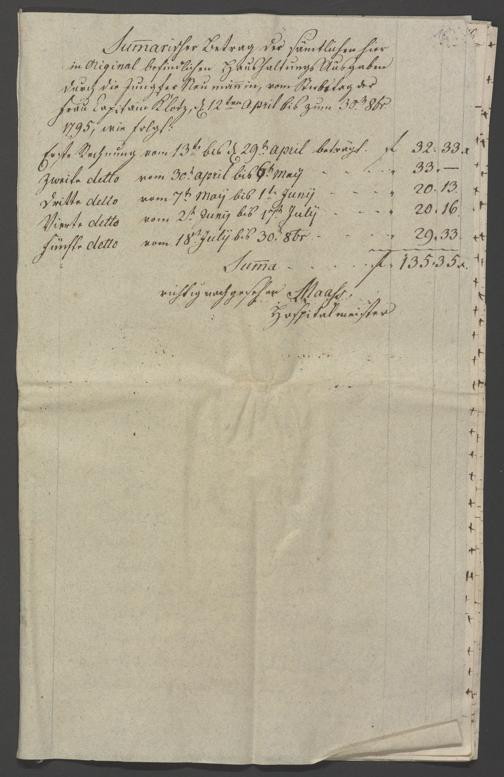 Summarischer Betrag der sämtlichen hier
in Original befindlichen Haushaltungs Ausgaben
durch die Jungfer Neumannin, vom Sterbetag der
Frau Capitain Klotz, d 12ten April bis zum 30t 8br
1795, wie folgt:
Erste Rechnung vom 13t bis d 29t April beträgt f 32.33.
Zweite detto vom 30t april bis 6t May " 33.—
Dritte detto vom 7t May bis 1t Junij " 20.13
Vierte detto vom 2t Junij bis 17t July " 20.16
Fünfte detto vom 18t July bis 30t 8br " 29.33
Summa f 135.35.
richtig nachgesehen Maass
Hospitalmeister